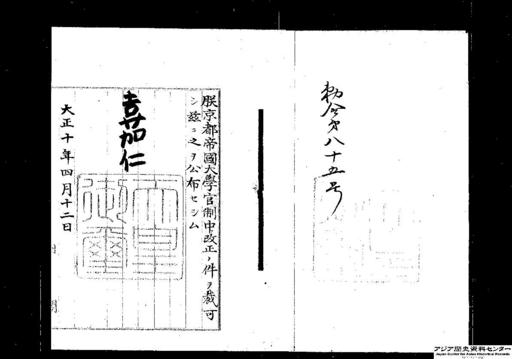 勅令第八十五号
朕京都帝國大學官制中改正ノ件ヲ裁可
シ茲ニ之ヲ公布セシム
嘉仁
天皇
御璽
大正十年四月十二日
アジア歴史資料センター
Japan Center for Asian Historical Records